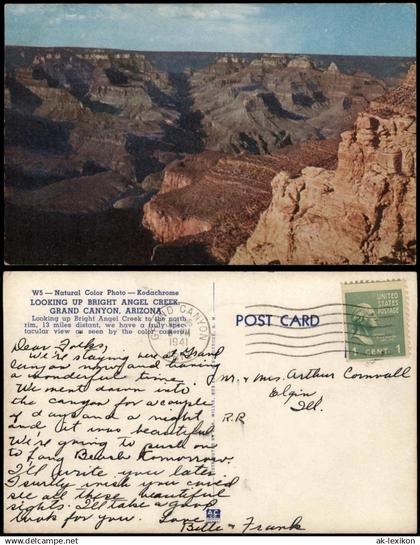 W5 — Natural Color Photo — Kodachrome
LOOKING UP BRIGHT ANGEL CREEK
GRAND CANYON, ARIZONA
Looking up Bright Angel Creek to the north
rim, 13 miles distant, we have a truly spec-
tacular view as seen by the color camera.
GRAND CANYON
1941
POST CARD
UNITED STATES
POSTAGE
1 CENT 1
Dear Folks,
We're staying here at Grand
Canyon now and having
a wonderful time.
We went down into
the canyon for a couple
of days and a night
and it was beautiful
We're going to push on
to Long Beach tomorrow.
I'll write you later
I surely wish you could
see all these beautiful
sights. I'll take a good
look for you. Love
Bille & Frank
Mr. & Mrs. Arthur Cornwall
Elgin
Ill.
R.R
ak-lexikon
© www.ak-lexikon.de